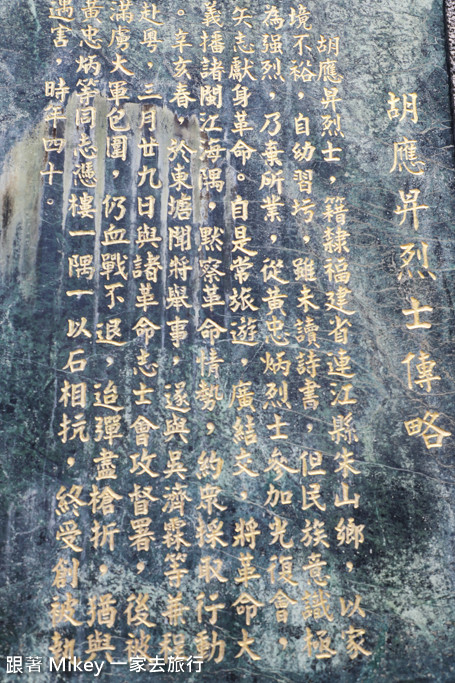 胡應昇烈士傳略
胡應昇烈士，籍隸福建省連江縣朱山鄉，以家
境不裕，自幼習圬，雖未讀詩書，但民族意識極
為強烈，乃棄所業，從黃忠炳烈士參加光復會，
矢志獻身革命。自是常旅遊，廣結交，將革命大
義播諸閩江海隅，默察革命情勢，約眾採取行動
。辛亥春，於東塘聞將舉事，遂與吳濟霖等兼程
赴粵，三月廿九日與諸革命志士會攻督署，後被
滿虜大軍包圍，仍血戰不退，迨彈盡槍折，猶與
黃忠炳等同志憑樓一隅一以石相抗，終受創被執
遇害，時年四十。
跟著 Mikey 一家去旅行